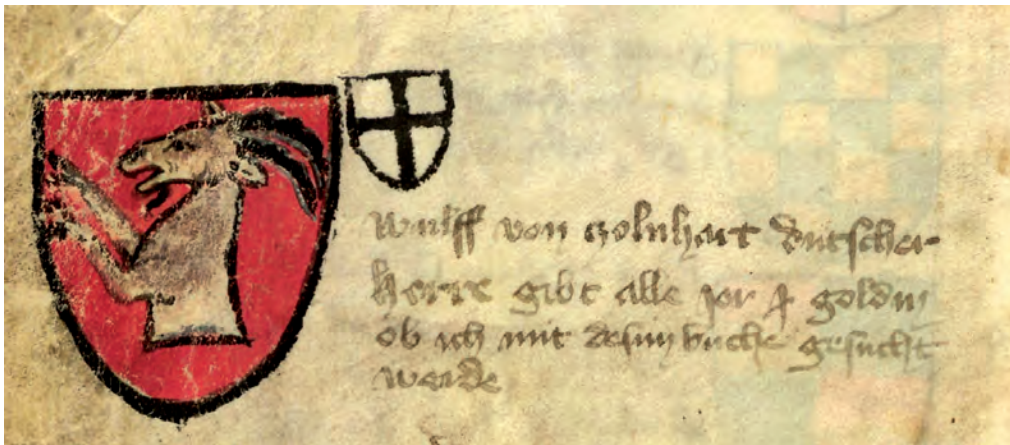 wulff von zolnhart dutscher
herre gibt alle jor j goldin
ob ich mit desim buche gesucht
werde